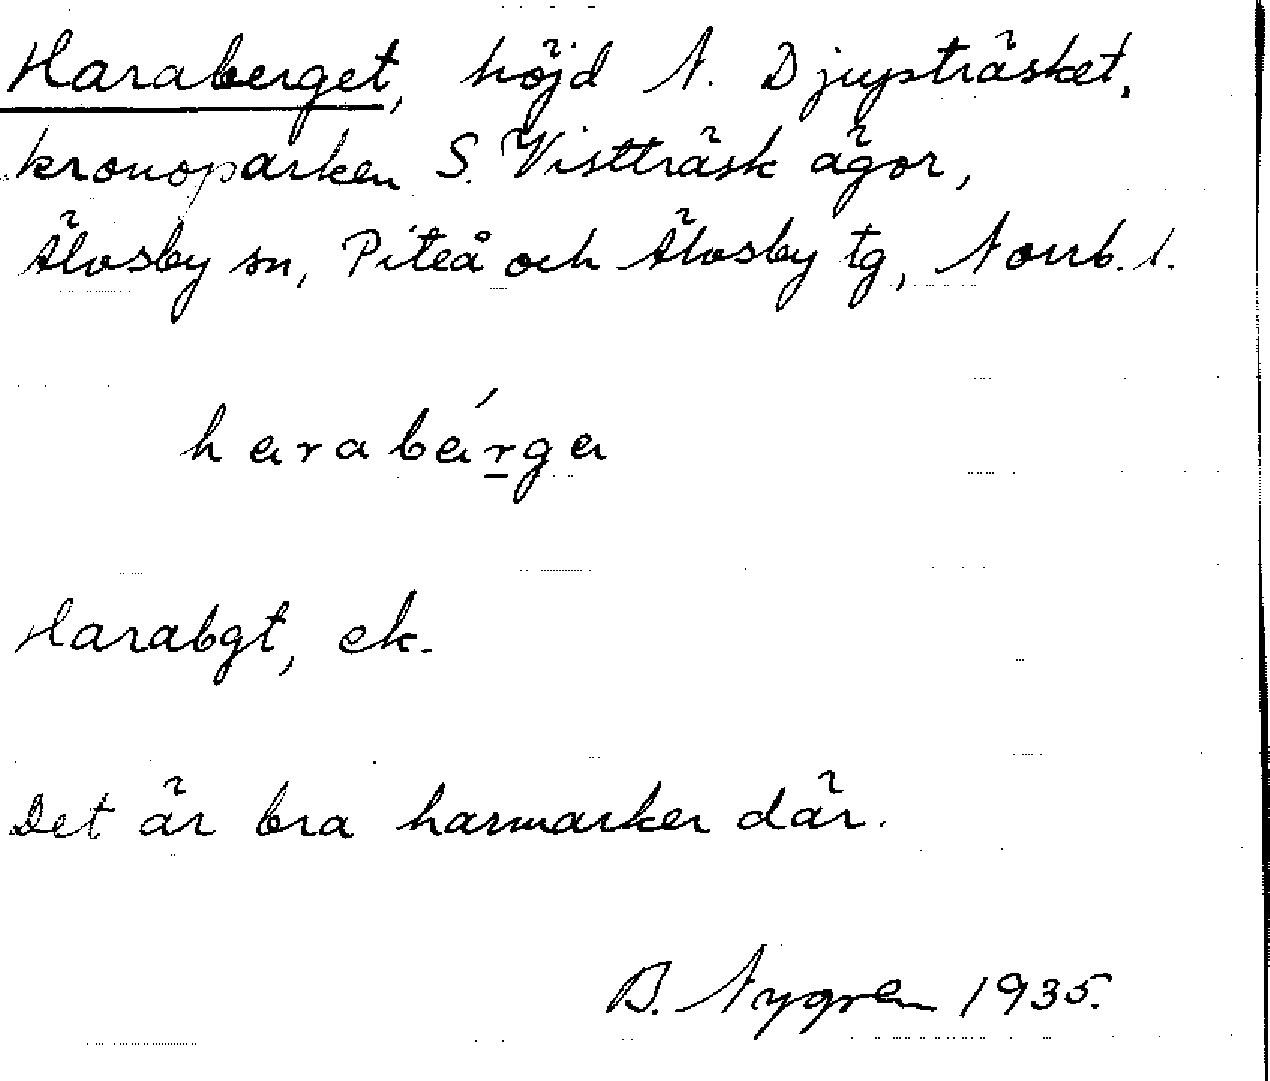 Haraberget, höjd N. Djupträsket,
kronoparken S. Vistträsk ägor,
Älvsby sn, Piteå och Älvsby tg, Norrb. l.
harabérga
Harabgt, ek.
Det är bra harmarker där.
B. Nygren 1935.